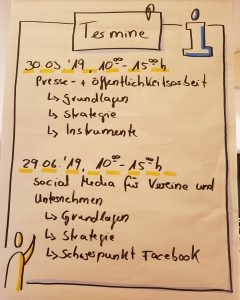 Termine
30.03.'19, 10⁰⁰-15⁰⁰h
Presse- + öffentlichkeitsarbeit
↳ Grundlagen
↳ Strategie
↳ Instrumente
29.06.'19, 10⁰⁰-15⁰⁰h
Social Media für Vereine und
Unternehmen
↳ Grundlagen
↳ Strategie
↳ Schwerpunkt Facebook